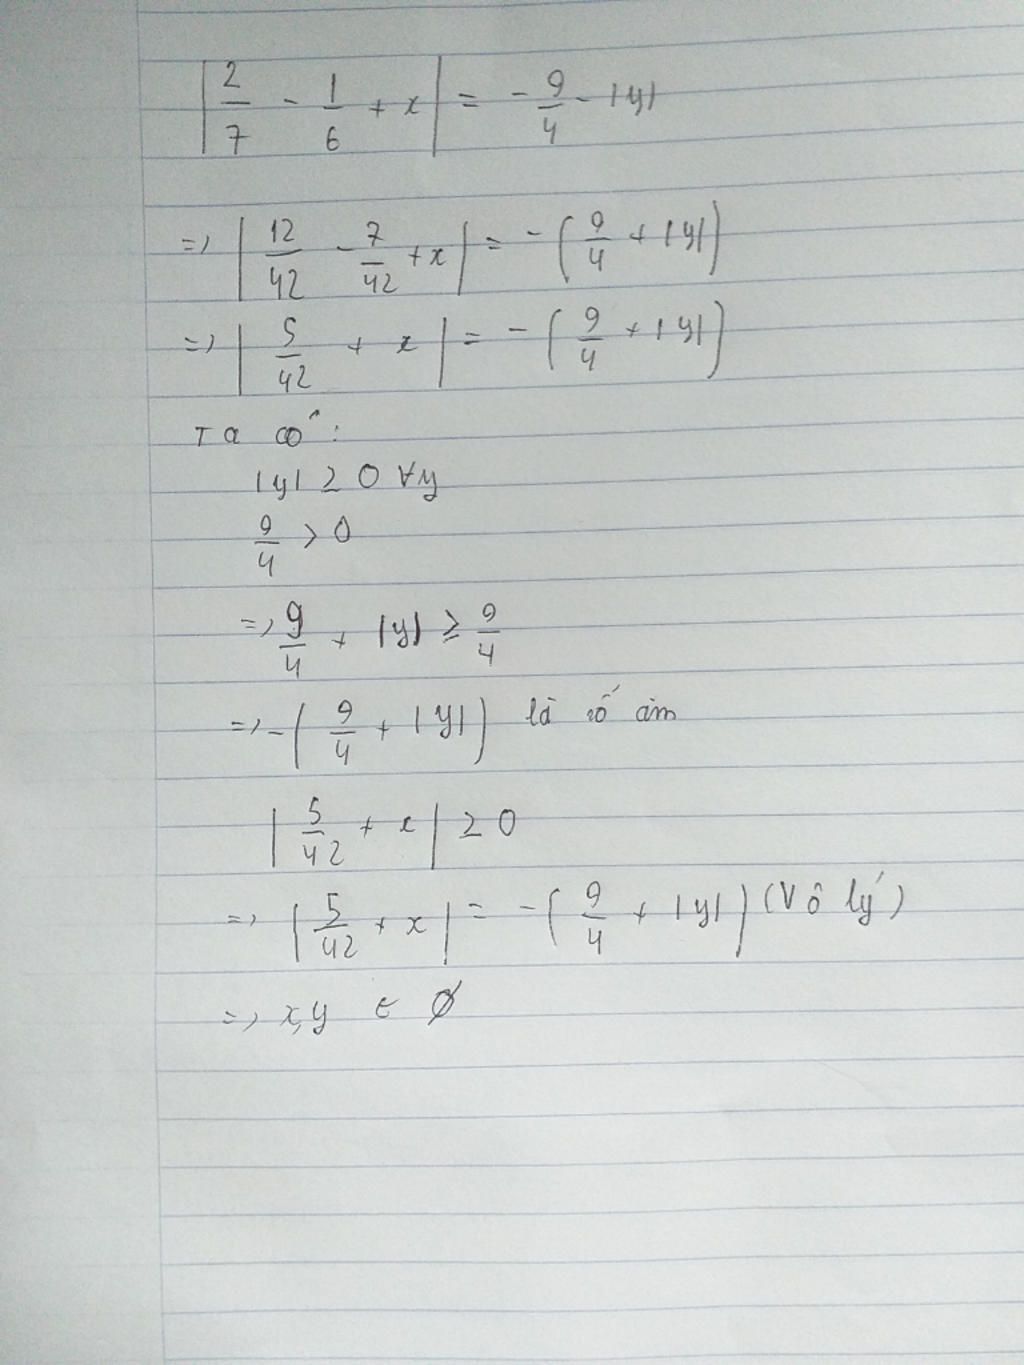 |2/7 - 1/6 + x| = - 9/4 - |y|
=> |12/42 - 7/42 + x| = - (9/4 + |y|)
=> |5/42 + x| = - (9/4 + |y|)
Ta có:
|y| ≥ 0 ∀y
9/4 > 0
=> 9/4 + |y| ≥ 9/4
=> - (9/4 + |y|) là số âm
|5/42 + x| ≥ 0
=> |5/42 + x| = - (9/4 + |y|) (Vô lý)
=> x,y ∈ ∅